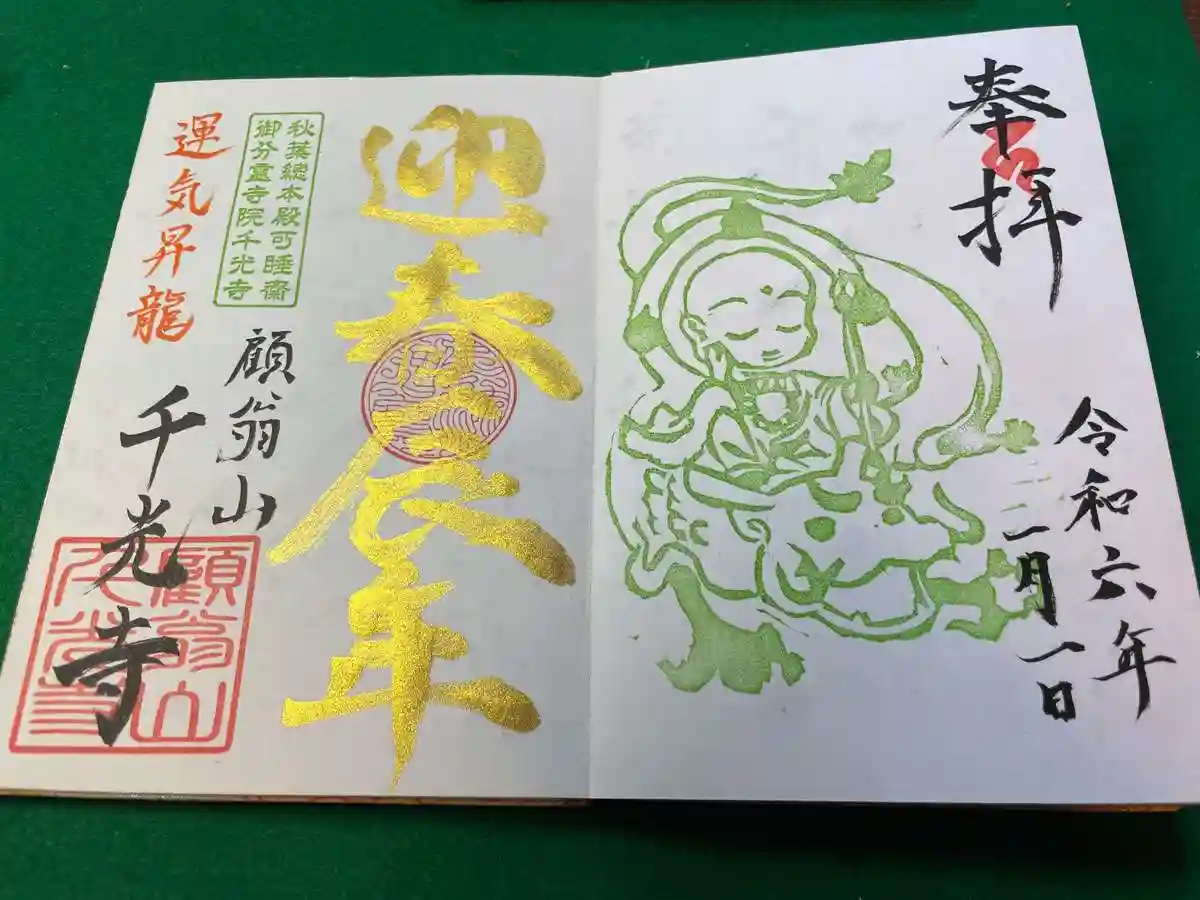 奉拝
令和六年
二月一日
迎春辰年
秋葉總本殿可睡齋
御分霊寺院千光寺
顧翁山
千光寺
運気昇龍
顧翁山
千光寺